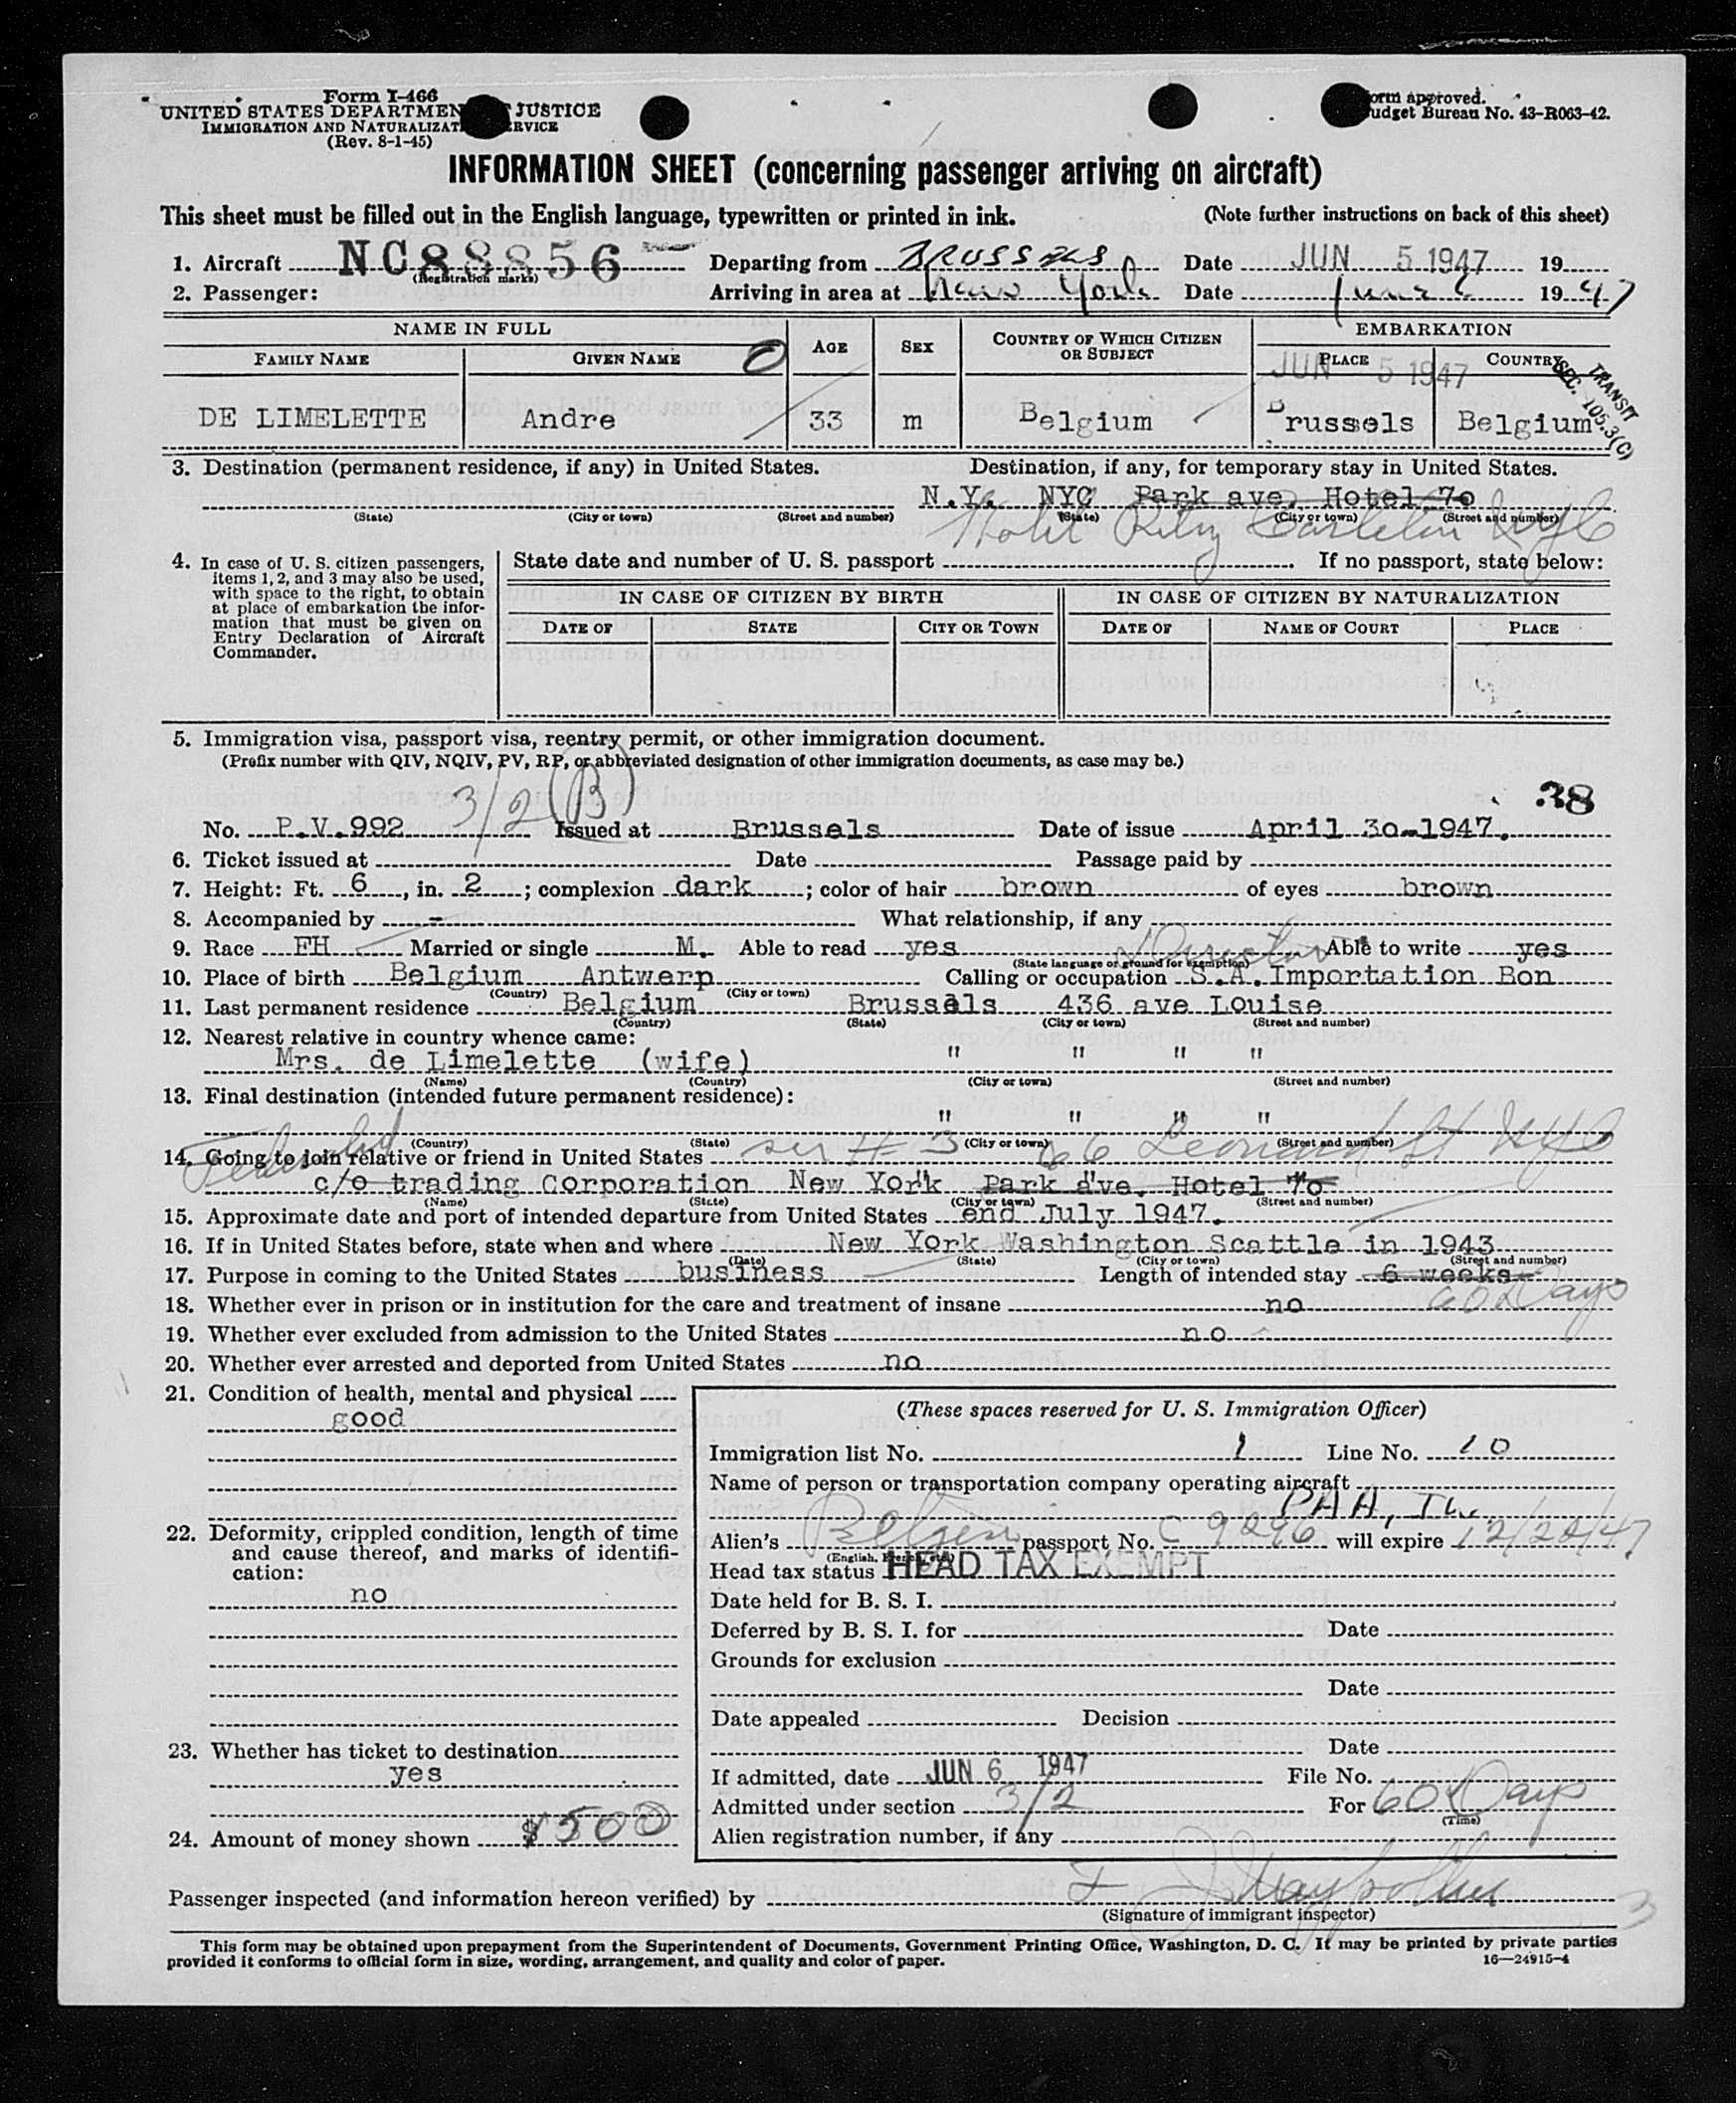 Form I-466
UNITED STATES DEPARTMEN JUSTICE
IMMIGRATION AND NATURALIZAT RVICE
(Rev. 8-1-45)
orm approved.
udget Bureau No. 43-R063-42.
INFORMATION SHEET (concerning passenger arriving on aircraft)
This sheet must be filled out in the English language, typewritten or printed in ink. (Note further instructions on back of this sheet)
1. Aircraft NC88856 Departing from BRUSSELS Date JUN 5 1947 19
(Registration marks)
2. Passenger: Arriving in area at New York Date June 6 1947
NAME IN FULL EMBARKATION
FAMILY NAME GIVEN NAME AGE SEX COUNTRY OF WHICH CITIZEN OR SUBJECT PLACE COUNTRY
JUN 5 1947
TRANSIT
SEC. 105.3(C)
DE LIMELETTE Andre 33 m Belgium Brussels Belgium
3. Destination (permanent residence, if any) in United States. Destination, if any, for temporary stay in United States.
N.Y. NYC Park ave, Hotel 70
(State) (City or town) (Street and number) (State) (City or town) (Street and number)
Hotel Ritz Carleton NYC
4. In case of U. S. citizen passengers, items 1, 2, and 3 may also be used, with space to the right, to obtain at place of embarkation the information that must be given on Entry Declaration of Aircraft Commander.
State date and number of U. S. passport . If no passport, state below:
IN CASE OF CITIZEN BY BIRTH IN CASE OF CITIZEN BY NATURALIZATION
DATE OF STATE CITY OR TOWN DATE OF NAME OF COURT PLACE
5. Immigration visa, passport visa, reentry permit, or other immigration document.
(Prefix number with QIV, NQIV, PV, RP, or abbreviated designation of other immigration documents, as case may be.)
3/2 (B) 38
No. P.V.992 Issued at Brussels Date of issue April 30 1947.
6. Ticket issued at Date Passage paid by
7. Height: Ft. 6, in. 2; complexion dark; color of hair brown of eyes brown
8. Accompanied by - What relationship, if any
9. Race FH Married or single M. Able to read yes Able to write yes
(State language or ground for exemption)
Director
10. Place of birth Belgium Antwerp Calling or occupation S.A. Importation Bon
(Country) (City or town)
11. Last permanent residence Belgium Brussels 436 ave Louise
(Country) (State) (City or town) (Street and number)
12. Nearest relative in country whence came:
Mrs. de Limelette (wife) " " " "
(Name) (Country) (City or town) (Street and number)
13. Final destination (intended future permanent residence):
" " " "
(Country) (State) (City or town) (Street and number)
14. Going to join relative or friend in United States 66 Leonard St NYC
c/o trading Corporation New York Park ave. Hotel 70
(Name) (State) (City or town) (Street and number)
15. Approximate date and port of intended departure from United States end July 1947.
16. If in United States before, state when and where New York Washington Scattle in 1943
(Date) (State) (City or town) (Street and number)
17. Purpose in coming to the United States business Length of intended stay 6 weeks
60 Days
18. Whether ever in prison or in institution for the care and treatment of insane no
19. Whether ever excluded from admission to the United States no
20. Whether ever arrested and deported from United States no
21. Condition of health, mental and physical
good
22. Deformity, crippled condition, length of time and cause thereof, and marks of identification:
no
23. Whether has ticket to destination
yes
24. Amount of money shown $500
(These spaces reserved for U. S. Immigration Officer)
Immigration list No. 1 Line No. 10
Name of person or transportation company operating aircraft
PAA, Inc
Alien's Belgian passport No. C 9296 will expire 12/22/47
(English, French, etc.)
Head tax status HEAD TAX EXEMPT
Date held for B. S. I.
Deferred by B. S. I. for Date
Grounds for exclusion
Date
Date appealed Decision
Date
If admitted, date JUN 6 1947 File No.
Admitted under section 3/2 For 60 Days
(Time)
Alien registration number, if any
Passenger inspected (and information hereon verified) by
(Signature of immigrant inspector)
3
This form may be obtained upon prepayment from the Superintendent of Documents, Government Printing Office, Washington, D. C. It may be printed by private parties
provided it conforms to official form in size, wording, arrangement, and quality and color of paper. 16—24915-4